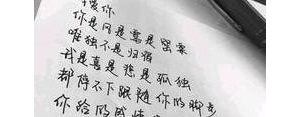 你
你是风是鸢是
唯独不是归宿
我是喜是悲是孤独
都停不下跟随你的脚步
你给的